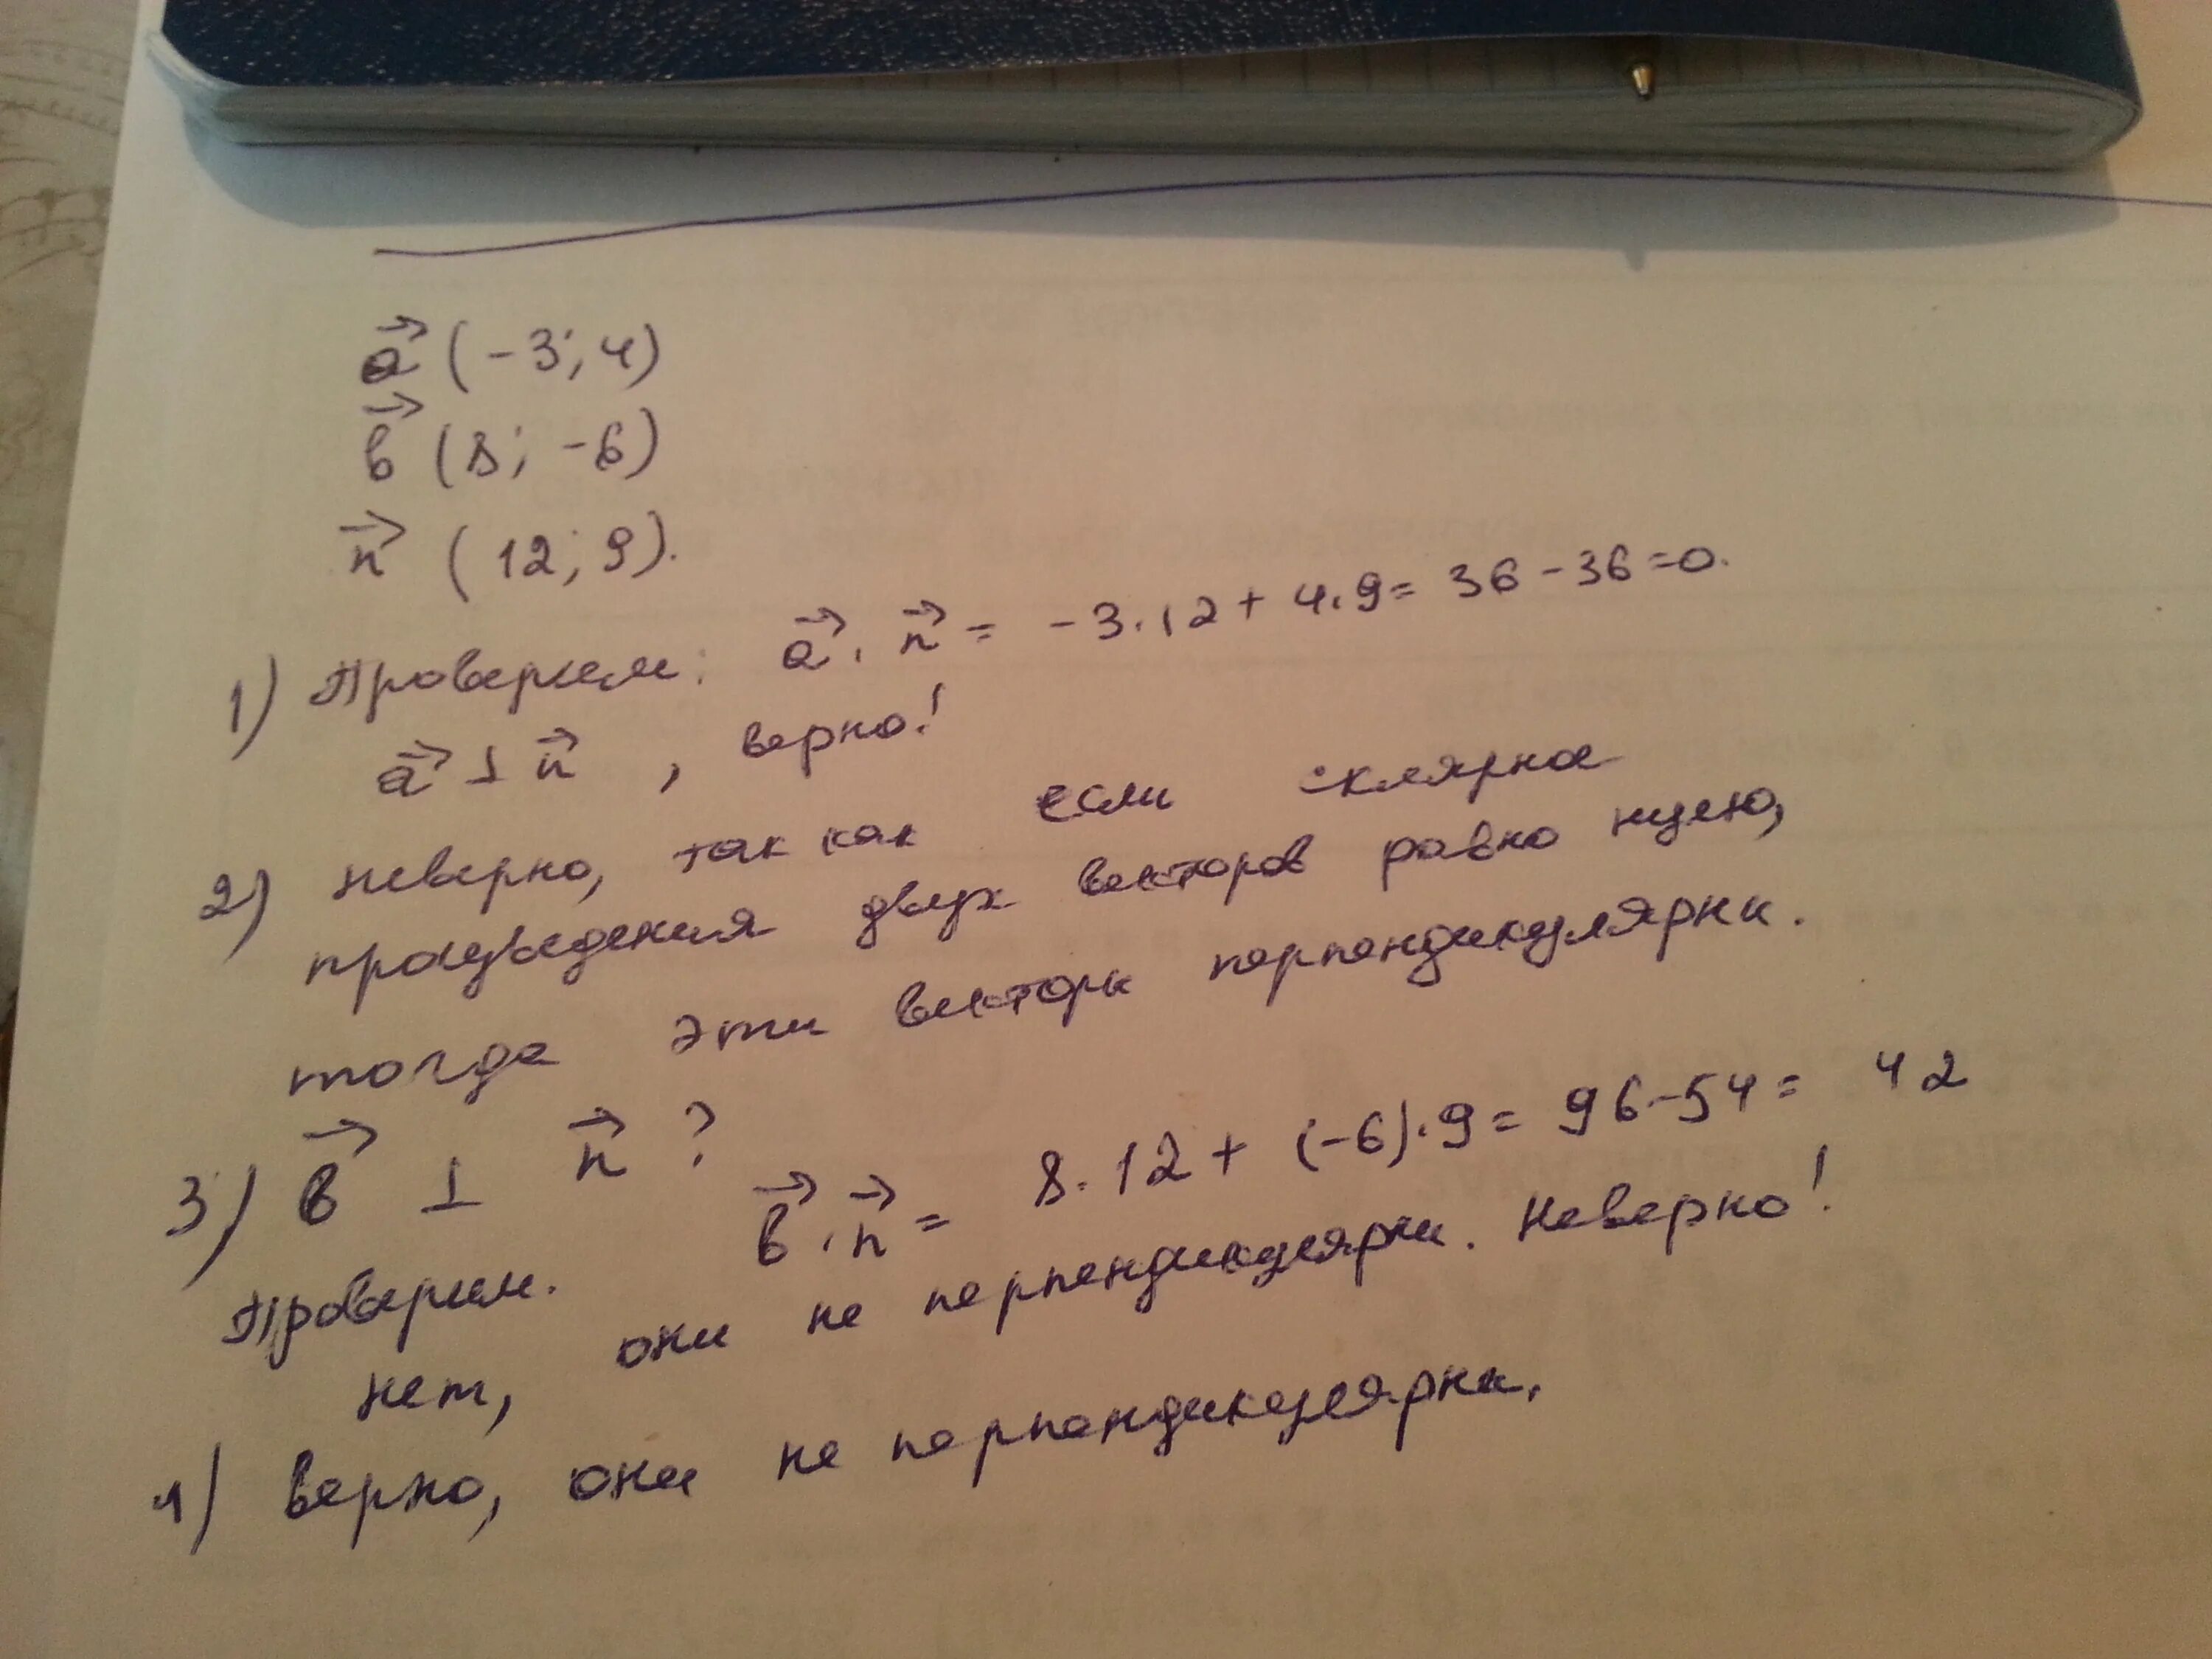 a⃗ (-3; 4)
b⃗ (8; -6)
n⃗ (12; 9).
1) Проверим: a⃗ · n⃗ = -3·12 + 4·9 = 36 - 36 = 0.
a⃗ ⊥ n⃗ , верно!
2) неверно, так как если склярное
произведения двух векторов равно нулю,
тогда эти векторы перпендикулярны.
3) b⃗ ⊥ n⃗ ?
Проверим. b⃗ · n⃗ = 8·12 + (-6)·9 = 96-54 = 42
нет, они не перпендикулярны. Неверно!
4) верно, они не перпендикулярны.